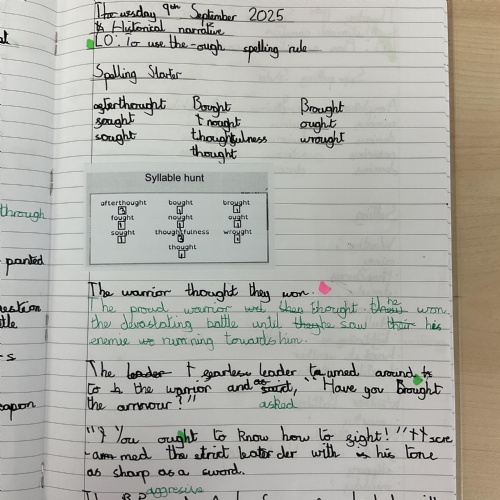 Tuesday 9th September 2025
Historical narrative
LO: To use the -ough spelling rule
Spelling Starter
afterthought Bought Brought
sought nought ought
sought thoughtfulness wrought
thought
Syllable hunt
afterthought bought brought
3 1 1
fought nought ought
1 1 1
sought thoughtfulness wrought
1 3 1
thought
1
through
panted
The warrior thought they won.
The proud warrior thought he won
the devastating battle until he saw his
enemie running towards him.
The fearless leader turned around
to the warrior and said, "Have you Brought
the armour?" asked
"You ought to know how to fight!" scre
med the strict leader with his tone
as sharp as a sword.
aggresive